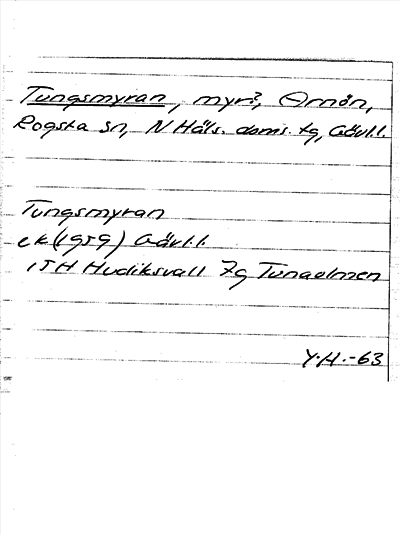 Tungsmyran, myr?, Omön,
Rogsta sn, N Häls. doms. tg, Gävl.l.
Tungsmyran
ek (1959) Gävl.l.
15H Hudiksvall 7g Tunaolmen
Y.H.-63